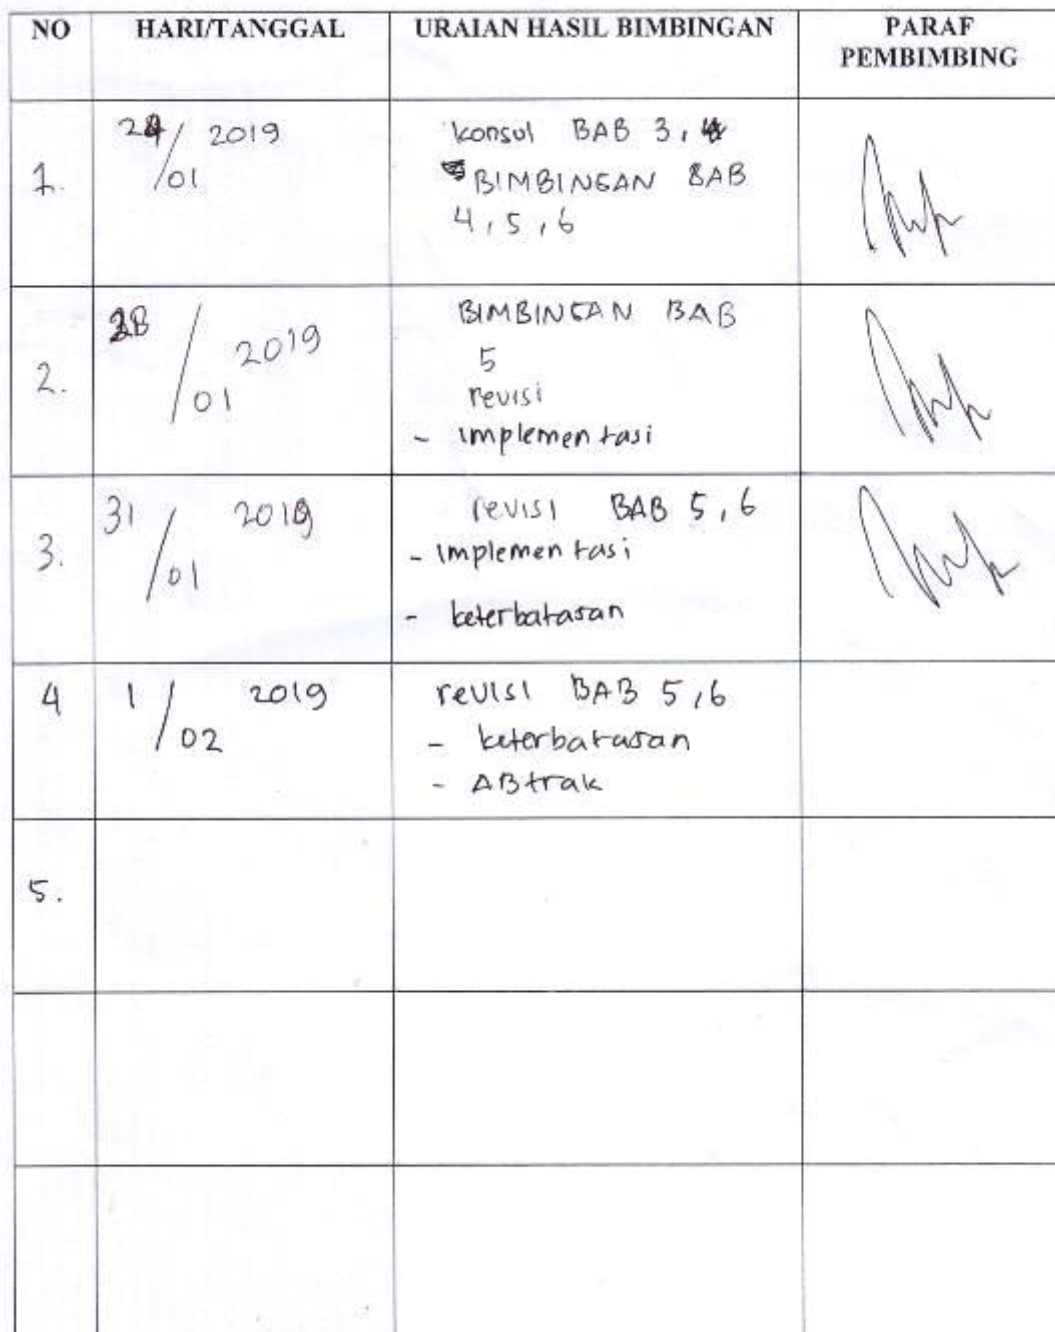 NO HARI/TANGGAL URAIAN HASIL BIMBINGAN PARAF
PEMBIMBING
1.
24/01 2019
konsul BAB 3,
BIMBINGAN BAB
4, 5, 6
2.
28/01 2019
BIMBINGAN BAB
5
revisi
- implementasi
3.
31/01 2019
revisi BAB 5, 6
- implementasi
- keterbatasan
4
1/02 2019
revisi BAB 5, 6
- keterbatasan
- ABtrak
5.